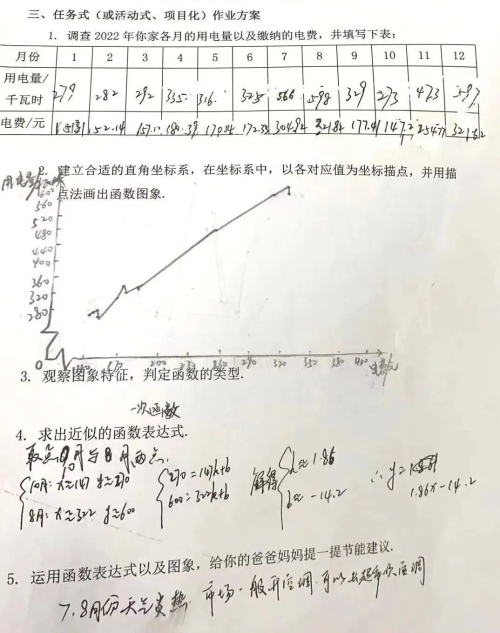 三、任务式（或活动式、项目化）作业方案
1. 调查 2022 年你家各月的用电量以及缴纳的电费，并填写下表：
月份 1 2 3 4 5 6 7 8 9 10 11 12
用电量/千瓦时 279 282 292 335 316 325 566 598 329 273 473 597
电费/元 152.14 157.10 180.39 170.14 304.92 321.82 177.41 147.2
2. 建立合适的直角坐标系，在坐标系中，以各对应值为坐标描点，并用描
点法画出函数图象.
用电量
600
560
520
480
440
400
360
320
280
0
3. 观察图象特征，判定函数的类型.
一次函数
4. 求出近似的函数表达式.
取10月与8月两点.
10月: x≈147 y≈270 270=147k+b 解得 k≈1.86 ∴ y=
8月: x≈322 y≈600 600=322k+b b≈-14.2 1.86x-14.2
5. 运用函数表达式以及图象，给你的爸爸妈妈提一提节能建议.
7.8月份天气炎热 市场一般开空调.可以去超市吹空调